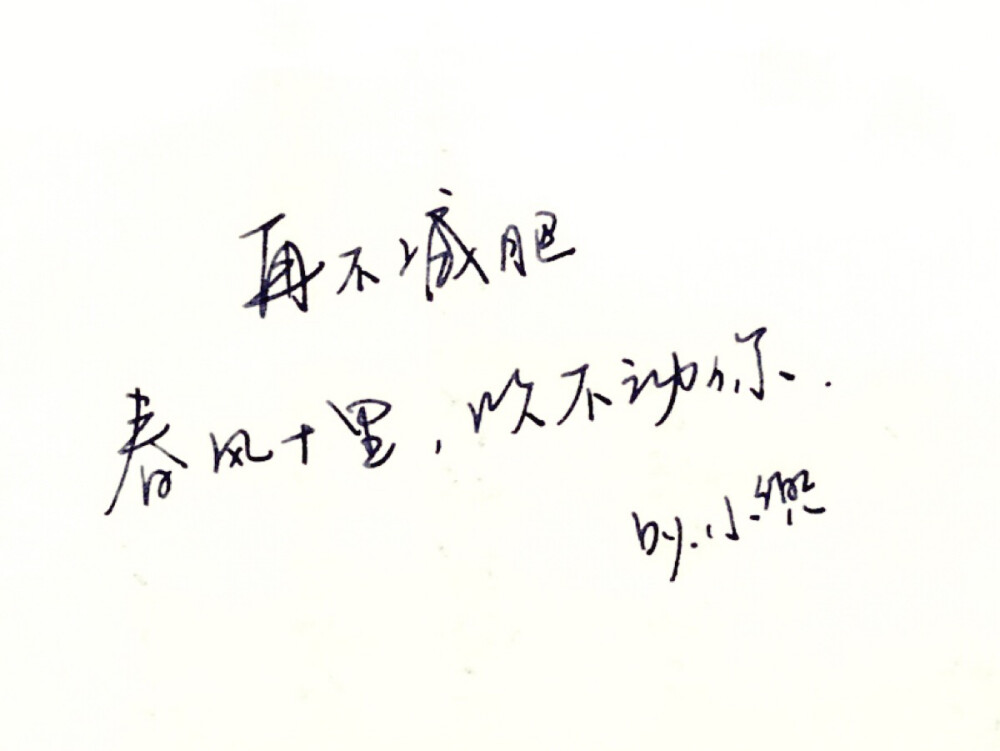 再不减肥
春风十里,吹不动你.
by.小